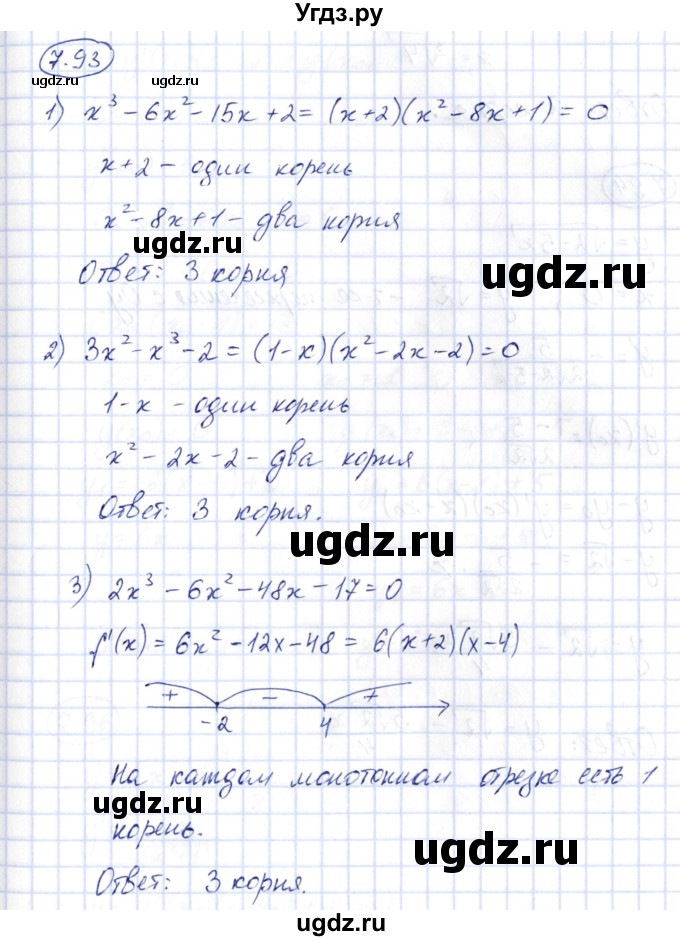 Угдз.ру
7.93
ugdz.ru ugdz.ru ugdz.ru
1) x³ - 6x² - 15x + 2 = (x+2)(x² - 8x + 1) = 0
x+2 - один корень
x² - 8x + 1 - два корня
ugdz.ru
Ответ: 3 корня
ugdz.ru
2) 3x² - x³ - 2 = (1-x)(x² - 2x - 2) = 0
1-x - один корень
x² - 2x - 2 - два корня
ugdz.ru
Ответ: 3 корня.
ugdz.ru
3) 2x³ - 6x² - 48x - 17 = 0
f'(x) = 6x² - 12x - 48 = 6(x+2)(x-4)
+ - +
-2 4
На каждом монотонном отрезке есть 1
ugdz.ru
корень.
ugdz.ru
Ответ: 3 корня.
ugdz.ru